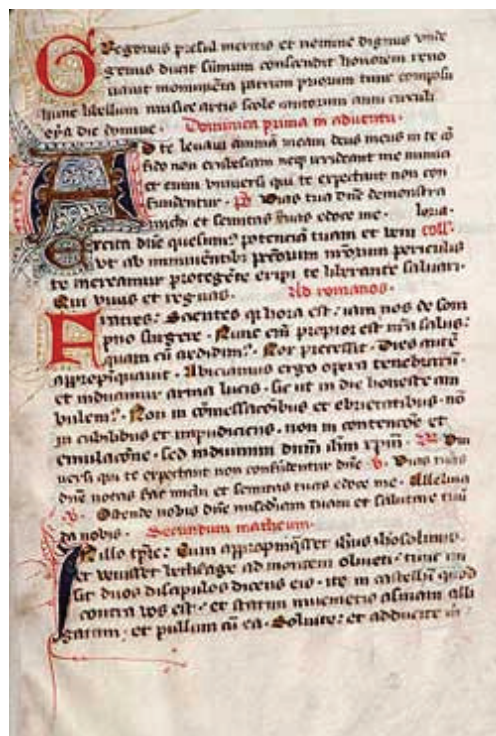 Gregorius presul meritis et nomine dignus vnde
genus ducit sūmum conscendit honorem reno
uauit monumēta patrum priorum tunc composu
hunc libellum musice artis scole cantorum anni circuli
die Dominica prima in aduentu.
Ad te leuaui animā meam deus meus in te cō
fido non erubescam neqȝ irrideant me inimici
et enim vniuersi qui te expectant non con
fundentur. ps Vias tuas dn̄e demonstra
michi et semitas tuas edoce me. loria.
Excita dn̄e quesum⁹ potenciā tuam et veni coll'
vt ab imminentibȝ pctōrum nr̄orum periculis
te mereamur protegēte eripi te liberante saluari.
Qui viuis et regnas. Ad romanos.
Fratres: Scientes qȝ hora est: iam nos de som
pno surgere. Nunc em̄ propior est nr̄a salus:
quam cū credidim⁹. Nox precessit. Dies autē
appropīquauit. Abiciamus ergo opera tenebrarū.
et induamur arma lucis. sic ut in die honeste am
bulem⁹. Non in cōmessacōibus et ebrietatibus. nō
in cubilibus et impudiciciis. non in contencōe et
emulacōne. sed induimini dnm̄ ihm̄ xpm̄. R Vni
uersi qui te expectant non confūdentur dn̄e. v. Vias tuas
dn̄e notas fac michi et semitas tuas edoce me. Alleluia
v. Ostende nobis dn̄e misc̄diam tuam et salutare tuū
da nobis. Secundum matheum.
In illo tp̄re: Cum appropinqȝsset ihūs ihosolimis.
et venisset bethfage ad montem oliueti. tunc mi
sit duos discipulos dicens eis. ite in castellū quod
contra vos est. et statim inuenietis asinam alli
gatam: et pullum cū ea. Soluite: et adducite m̄.